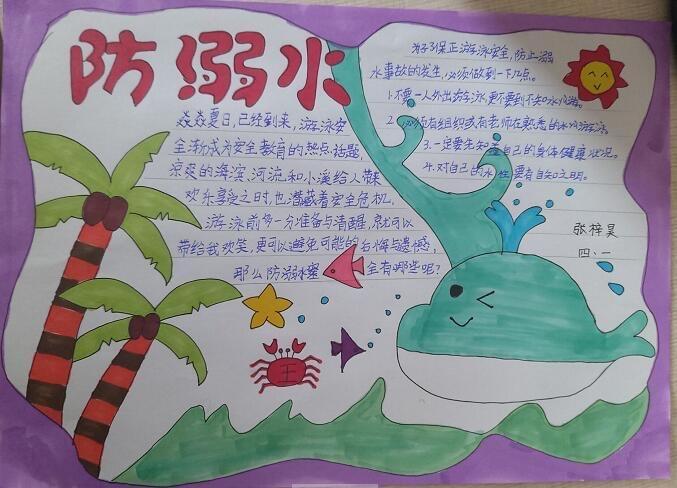 防溺水
炎炎夏日,已经到来,游泳安
全渐成为安全教育的热点话题,
凉爽的海滨,河流和小溪给人带来
欢乐享受之时,也潜藏着安全危机,
游泳前多一分准备与清醒,就可以
带给我欢笑,更可以避免可能的后悔与遗憾,
那么防溺水 全有哪些呢?
为了保正游泳安全,防止溺
水事故的发生,必须做到一下几点。
1.不要一人外出游泳,更不要到不知水 游。
2. 必须有组织或有老师在熟悉的水 游泳
3.一定要先知道自己的身体健康状况。
4.对自己的水性要有自知之明。
张梓昊
四、一
王